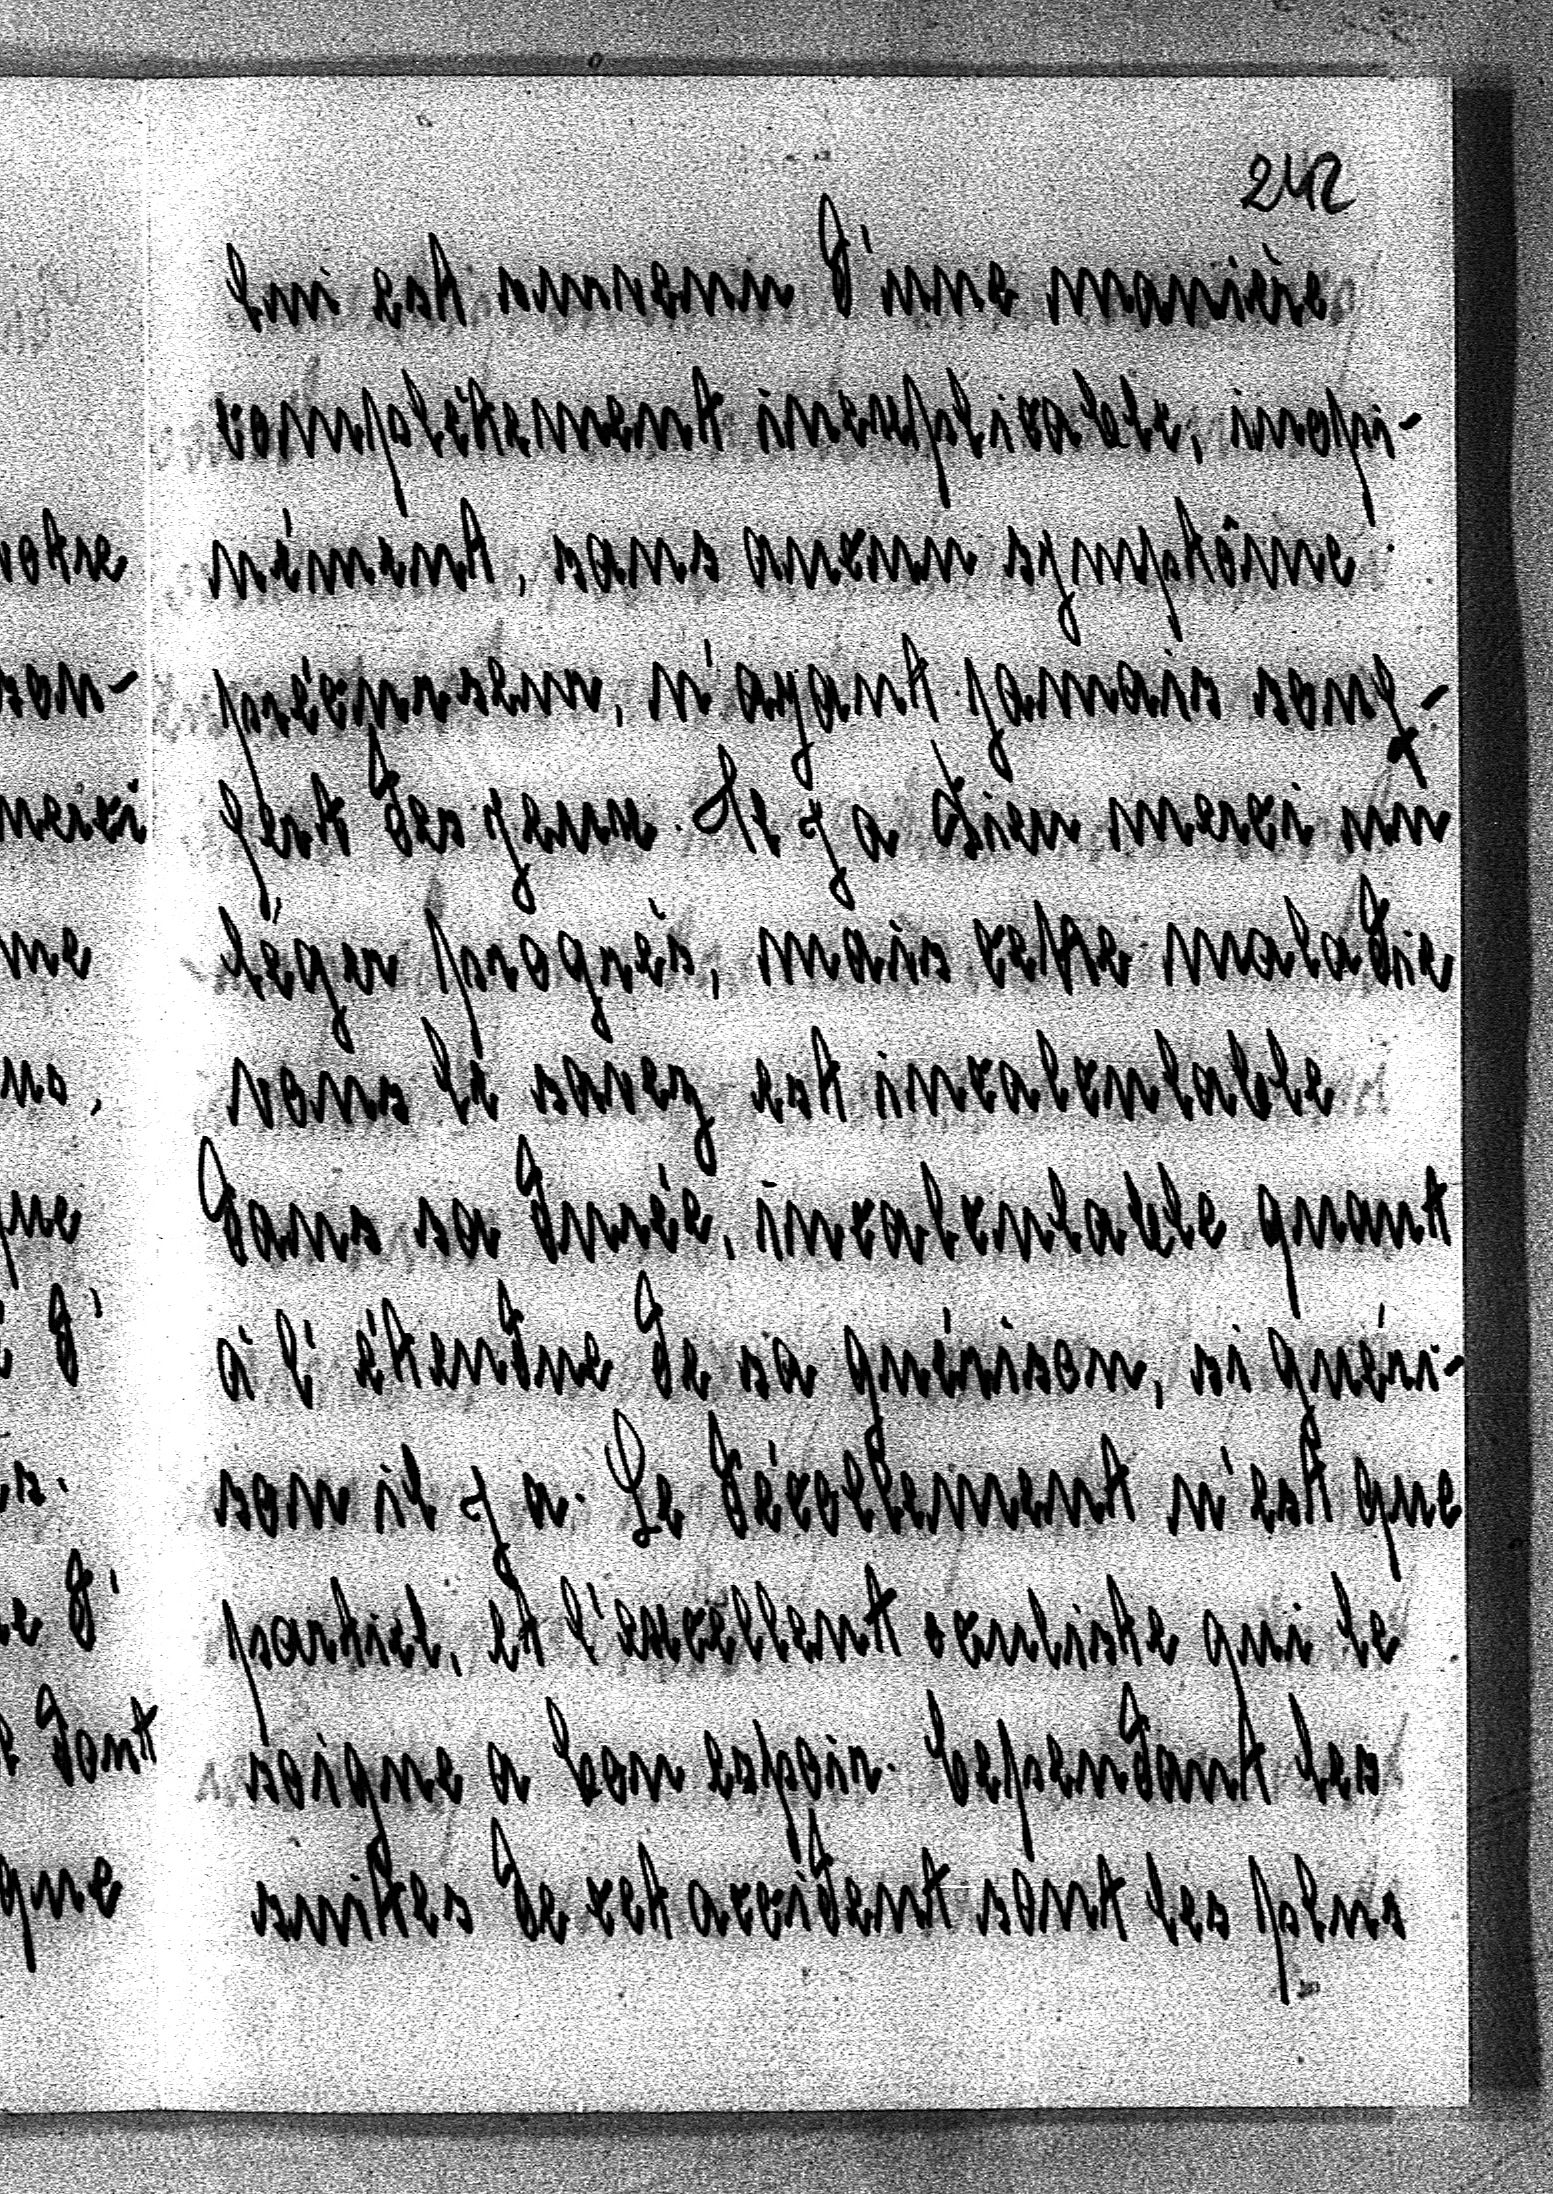 242
lui est survenu d'une manière
complètement inexplicable, inopi-
nément, sans aucun symptôme
précurseur, n'ayant jamais souf-
fert des yeux. Il y a Dieu merci un
léger progrès, mais cette maladie
vous le savez est incalculable
dans sa durée, incalculable quant
à l'étendue de sa guérison, si guéri-
son il y a. Le décollement n'est que
partiel, et l'excellent oculiste qui le
soigne a bon espoir. Cependant les
suites de cet accident sont les plus
votre
son-
merci
me
ns,
que
d'
s.
e d'
dont
que